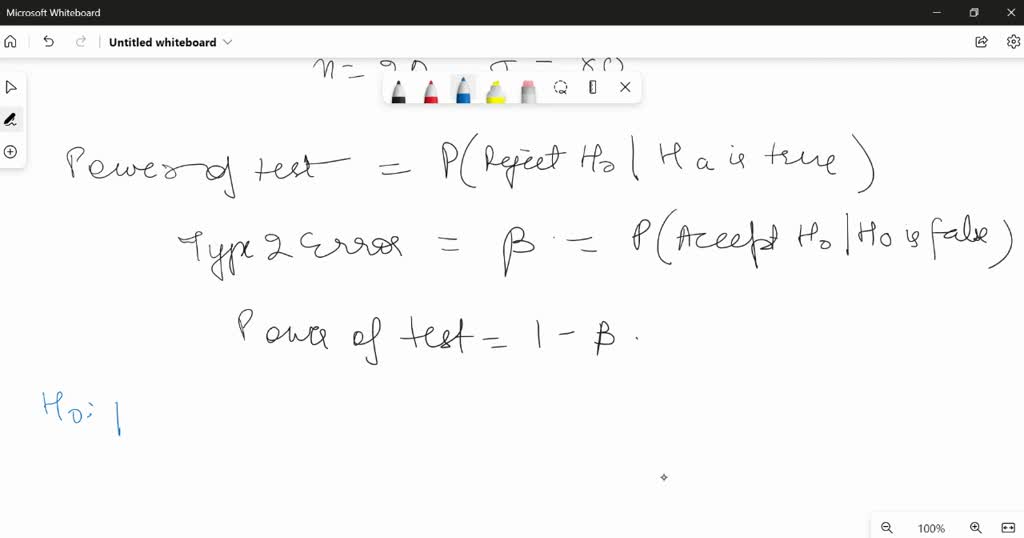 Microsoft Whiteboard
Untitled whiteboard
n =
Power of test = P(Reject H0 | Ha is true)
Type 2 Error = β = P(Accept H0 | H0 is false)
Power of test = 1 - β.
H0: |
100%